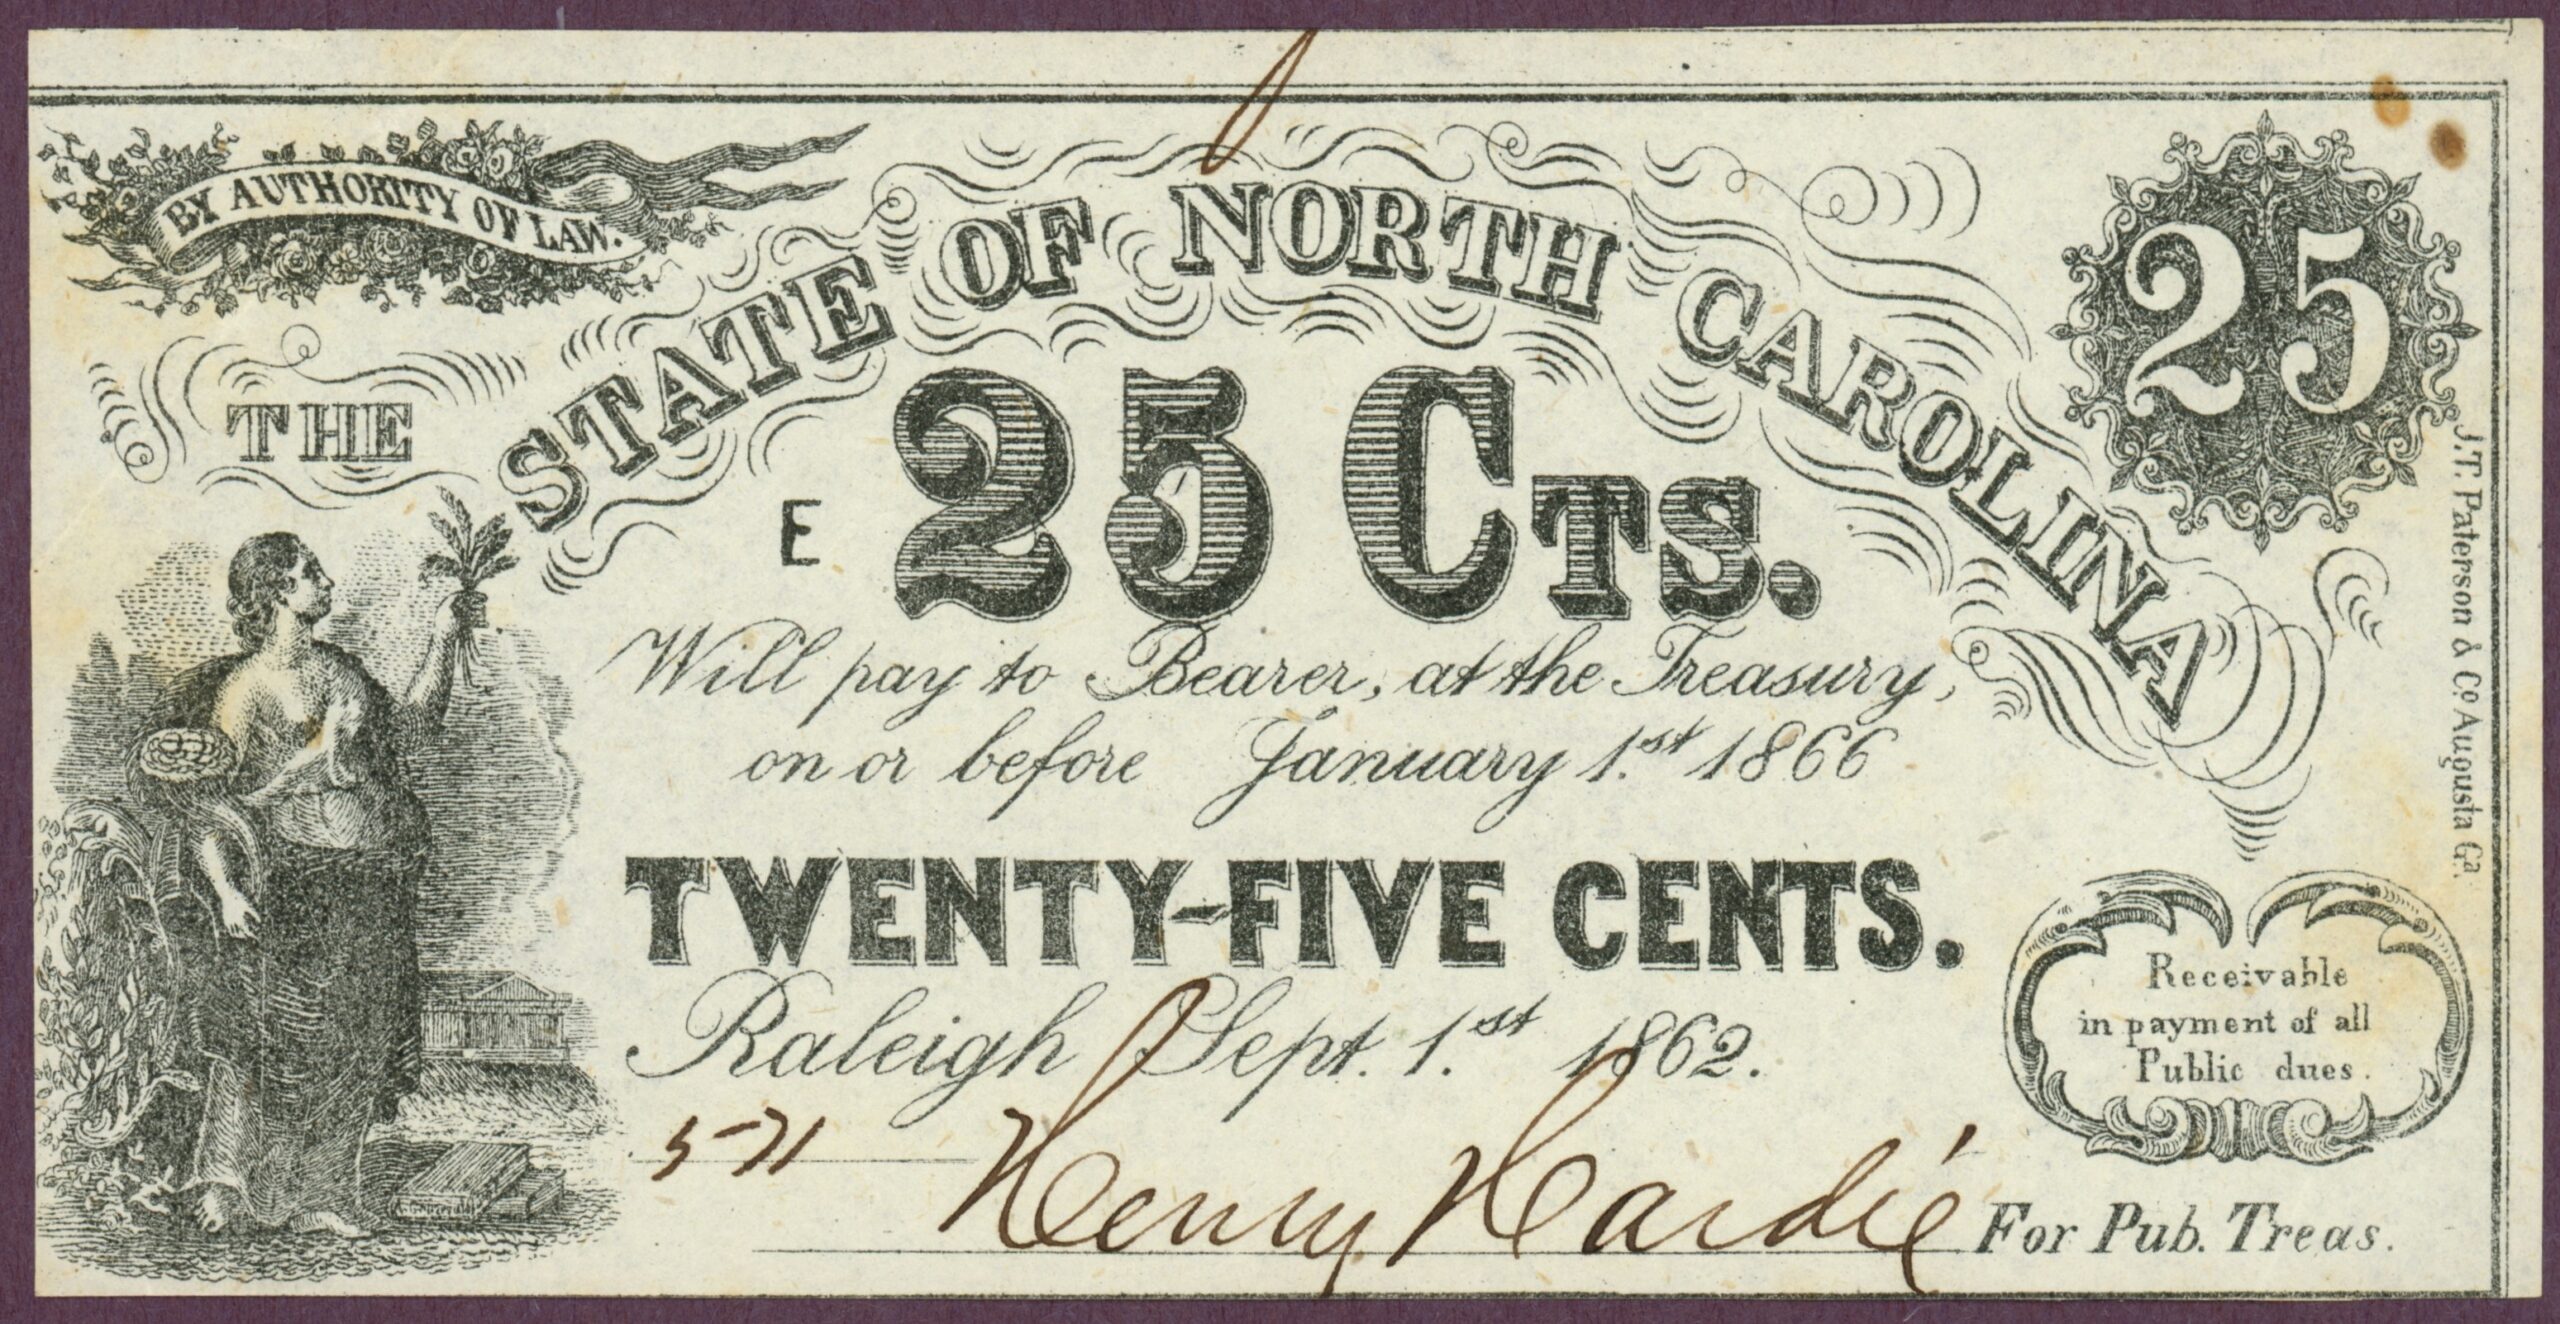 BY AUTHORITY OF LAW.
THE STATE OF NORTH CAROLINA
25
E 25 CTS.
Will pay to Bearer, at the Treasury,
on or before January 1.st 1866
TWENTY-FIVE CENTS.
Raleigh Sept. 1.st 1862.
571
Henry Hardie For Pub. Treas.
Receivable
in payment of all
Public dues.
J.T. Paterson & Co Augusta Ga.